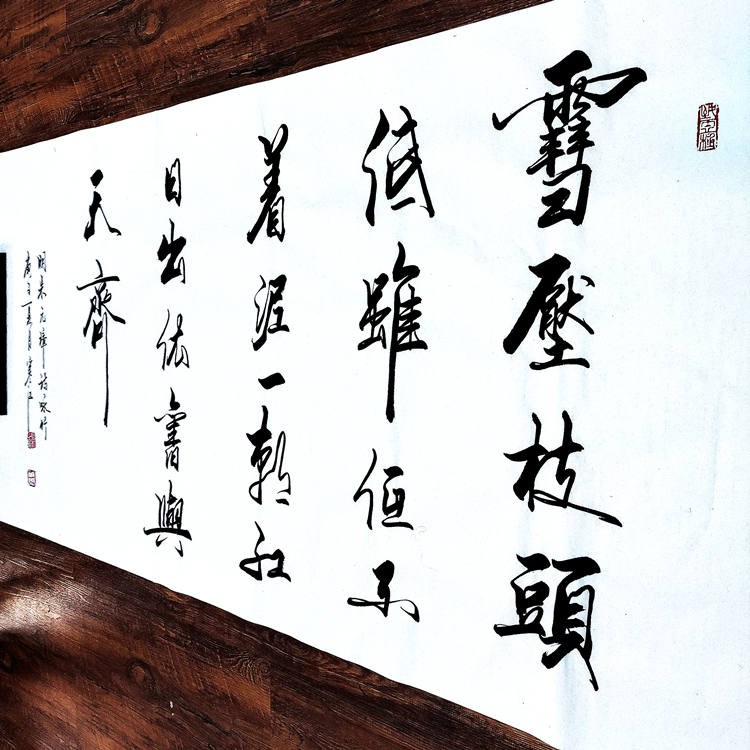 雪壓枝頭
低雖低不
着泥一朝紅
日出依舊與
天齊
明朱元璋詩咏竹